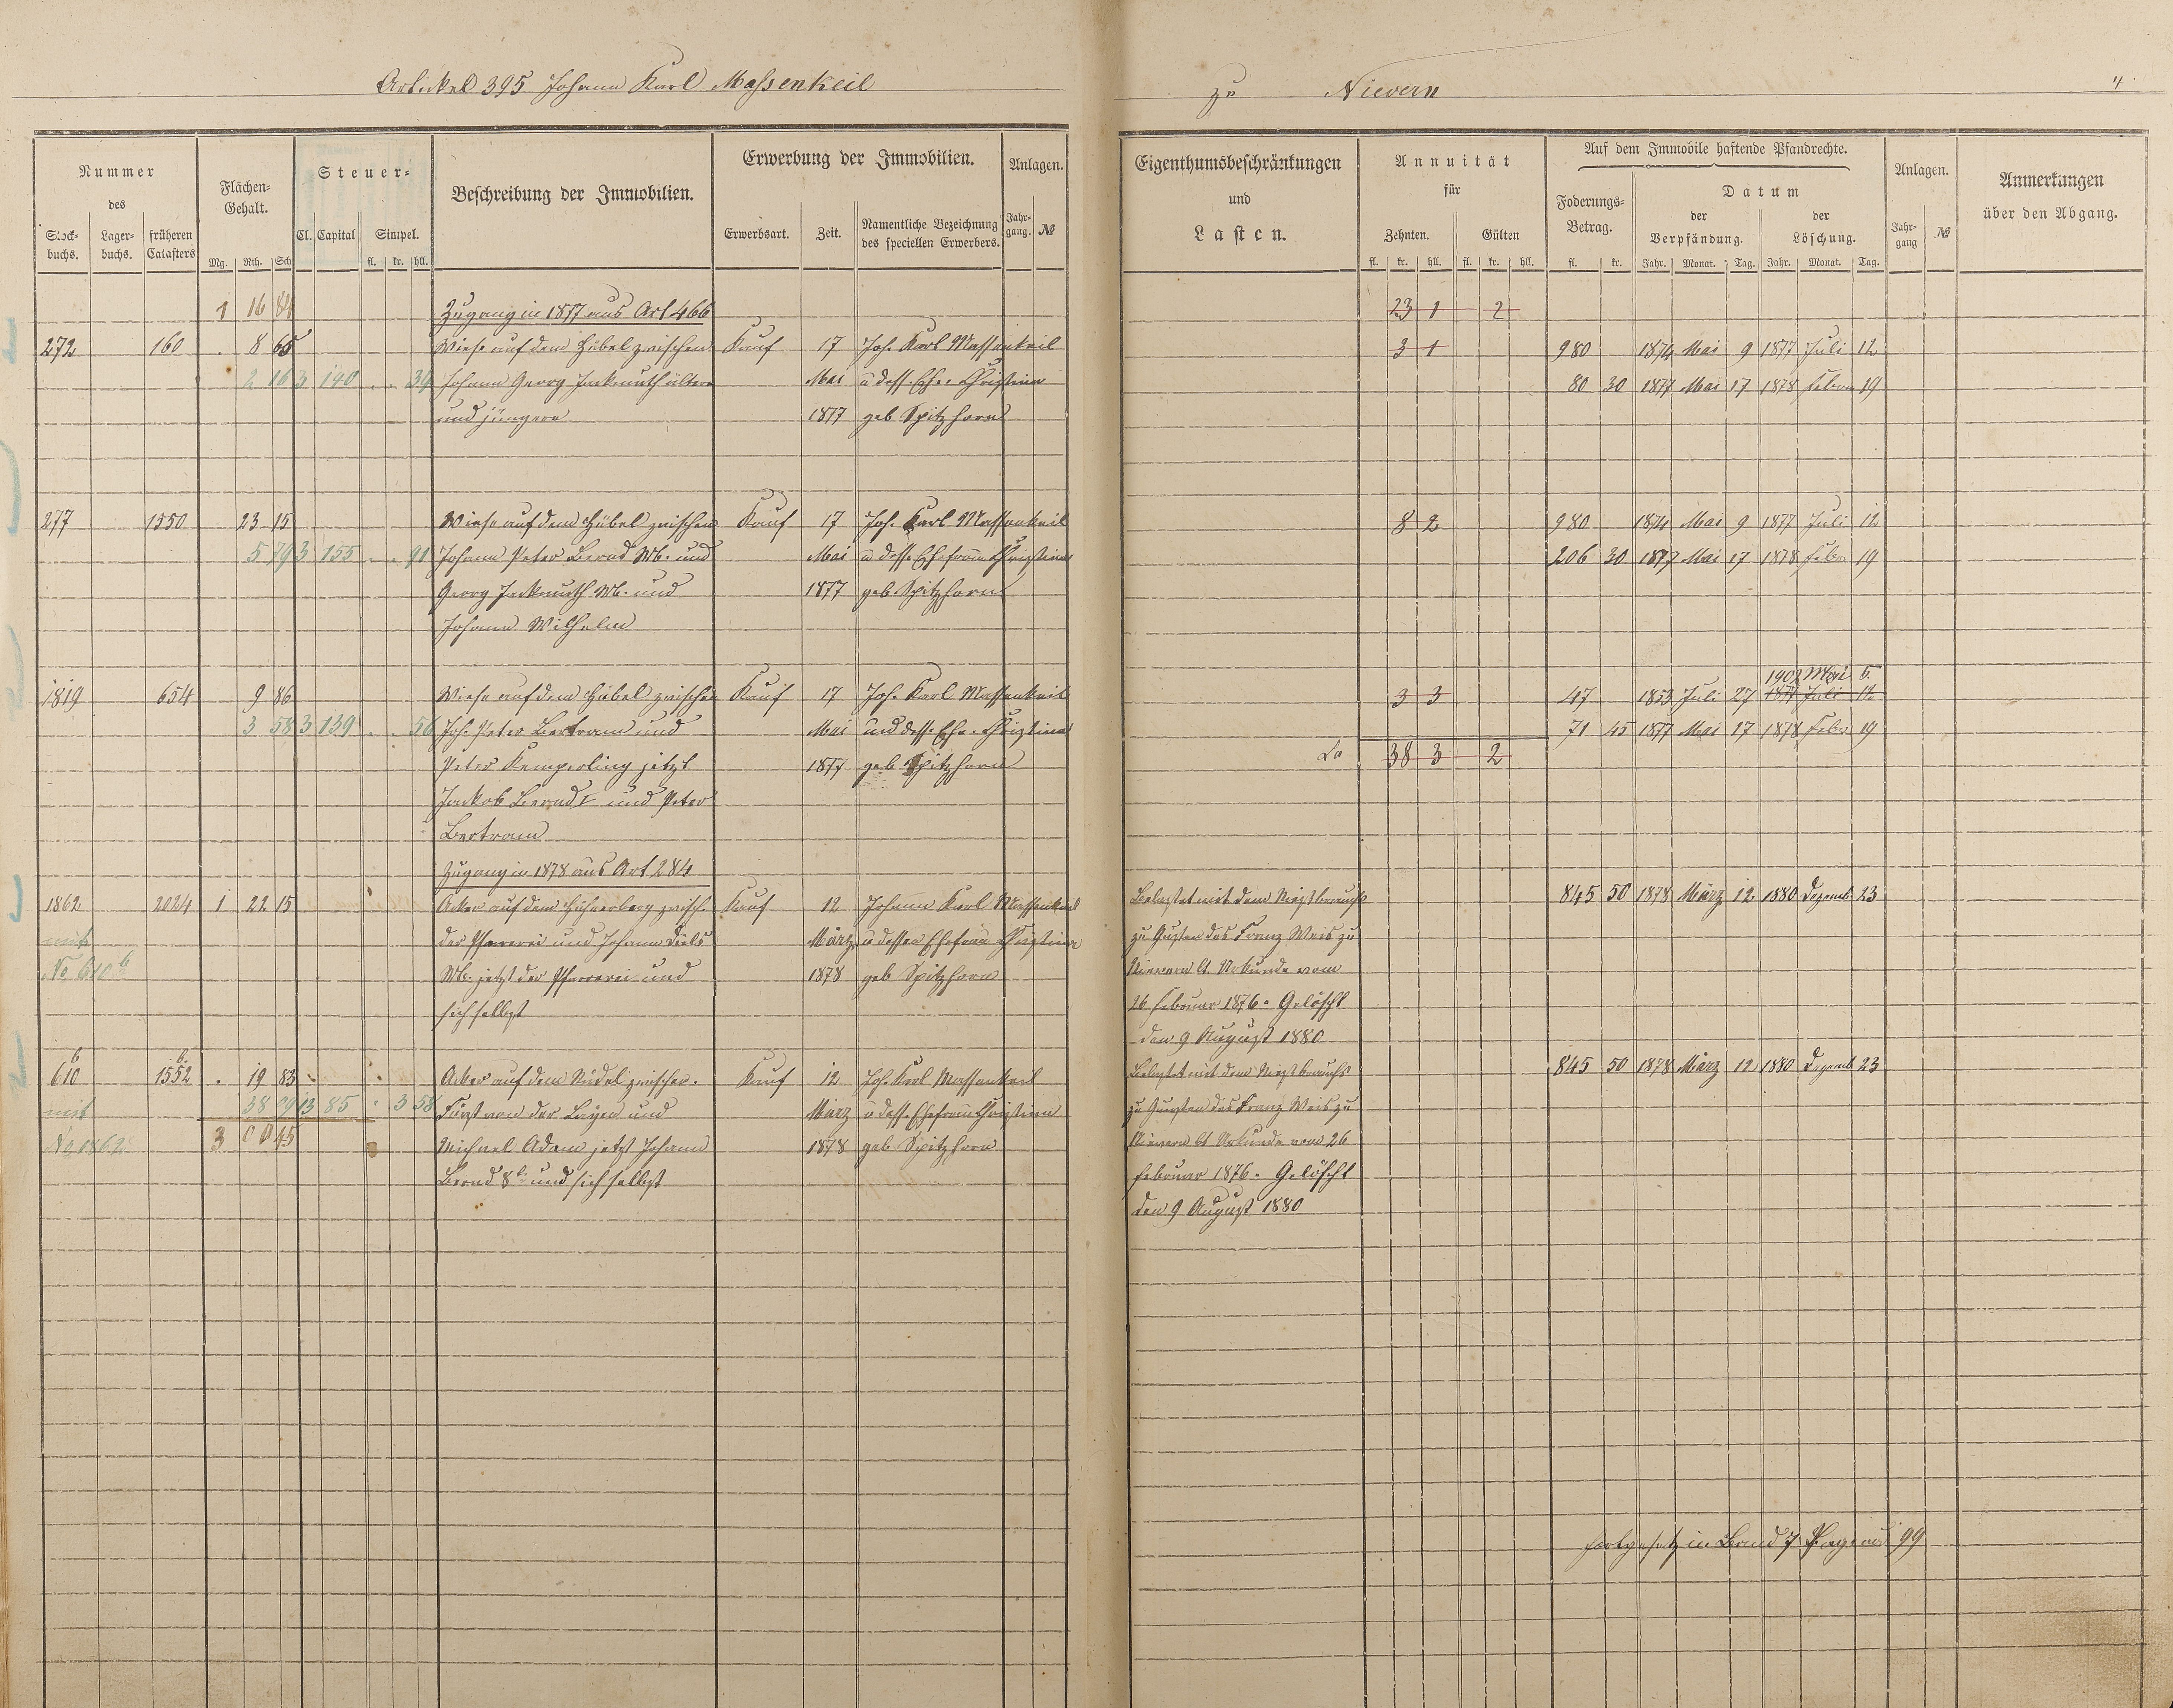 Artikel 395 Johann Karl Massenkeil
zu Nievern
4
Nummer
des
Stock-buchs.
Lager-buchs.
früheren Catasters
Flächen-Gehalt.
Mg. Rth. Sch
Steuer-
Cl. Capital Simpel.
fl. kr. hll.
Beschreibung der Immobilien.
Erwerbung der Immobilien.
Erwerbsart. Zeit. Namentliche Bezeichnung des speciellen Erwerbers.
Anlagen.
Jahr-gang. №
Eigenthumsbeschränkungen
und
Lasten.
Annuität
für
Zehnten. Gülten
fl. kr. hll. fl. kr. hll.
Auf dem Immobile haftende Pfandrechte.
Foderungs-Betrag.
fl. kr.
Datum
der Verpfändung. der Löschung.
Jahr. Monat. Tag. Jahr. Monat. Tag.
Anlagen.
Jahr-gang №
Anmerkungen
über den Abgang.
1 16 Zugang in 1877 aus Art 466 23 1 2
272 160 . 8 65 Wiese auf dem Hübel zwischen Kauf 17 Joh. Karl Massenkeil 3 1 980 1874 Mai 9 1877 Juli 12
2 16 3 140 . . 34 Johann Georg Jackmuth ältere Mai u dess. Ehe. Christina 80 30 1877 Mai 17 1878 Febr 19
und jüngere 1877 geb Spitzhorn
277 1550 23 15 Wiese auf dem Hübel zwischen Kauf 17 Joh. Karl Massenkeil 8 2 980 1874 Mai 9 1877 Juli 12
5 79 3 155 . . 91 Johann Peter Bernd Wb. und Mai u dess. Ehefrau Christina 206 30 1877 Mai 17 1878 Febr 19
Georg Jackmuth Wb. und 1877 geb. Spitzhorn
Johann Wilhelm
1902 Mai 6.
1819 654 9 86 Wiese auf dem Hübel zwischen Kauf 17 Joh. Karl Massenkeil 3 3 47 1853 Juli 27 1877 Juli 12
3 58 3 139 . . 56 Joh. Peter Bertram und Mai und dess. Ehe. Christina 71 45 1877 Mai 17 1878 Febr 19
Peter Kemperling jetzt 1877 geb Spitzhorn 38 3 2
Jackob Bernd und Peter
Bertram
Zugang in 1878 aus Art 284
1862 2024 1 22 15 Acker auf dem Hühnerberg zwisch. Kauf 12 Johann Karl Massenkeil Belastet mit dem Niesbrauch 845 50 1878 März 12 1880 Dezemb. 23
mit der Pfarrerei und Johann Diels März u dessen Ehefrau Christina zu Gunsten des Franz Weis zu
No 610 b Wb. jetzt der Pfarrerei und 1878 geb Spitzhorn Nievern lt. Urkunde vom
sich selbst 26 Februar 1876. Gelöscht
den 9 August 1880
610 b 1552 b . 19 83 Acker auf dem Küdel zwischen Kauf 12 Joh. Karl Massenkeil Belastet mit dem Niesbrauch 845 50 1878 März 12 1880 Dezemb 23
mit 38 09 3 85 . 3 58 Fürst von der Leyen und März u dess. Ehefrau Christina zu Gunsten des Franz Weis zu
No 1862 3 00 45 Michael Adam jetzt Johann 1878 geb Spitzhorn Nievern lt Urkunde vom 26
Bernd 8t und sich selbst Februar 1876. Gelöscht
den 9 August 1880
fortgesetz in Band 7 Pagina 99